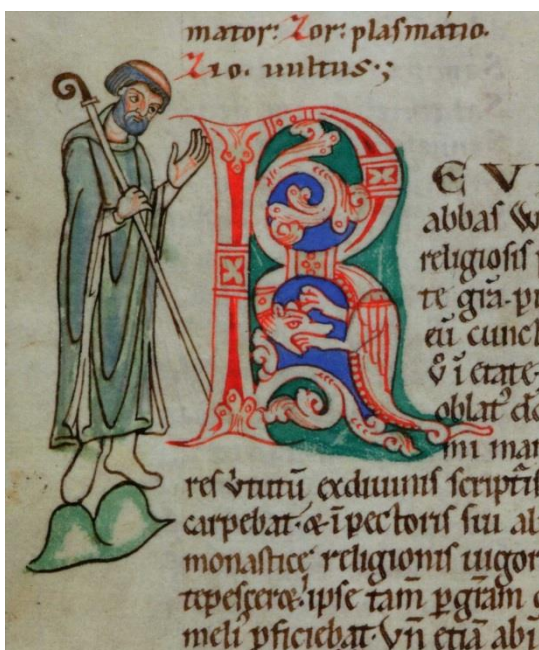 mator: Zor: plasmatio.
Zio. uultus·;
R EVE
abbas W
religiosis
te grã· p
eũ cuncl
ĩ etate·
oblat᾽ dõ
mi mar
res ꝟtutũ exdiuinis scriptis
carpebat· & ĩ pectoris sui al
monasticę religionis uigor
tepesceret᾽ ipse tam̃ ꝑ grãm
meli᾽ ꝓficiebat· Vñ etiã abi